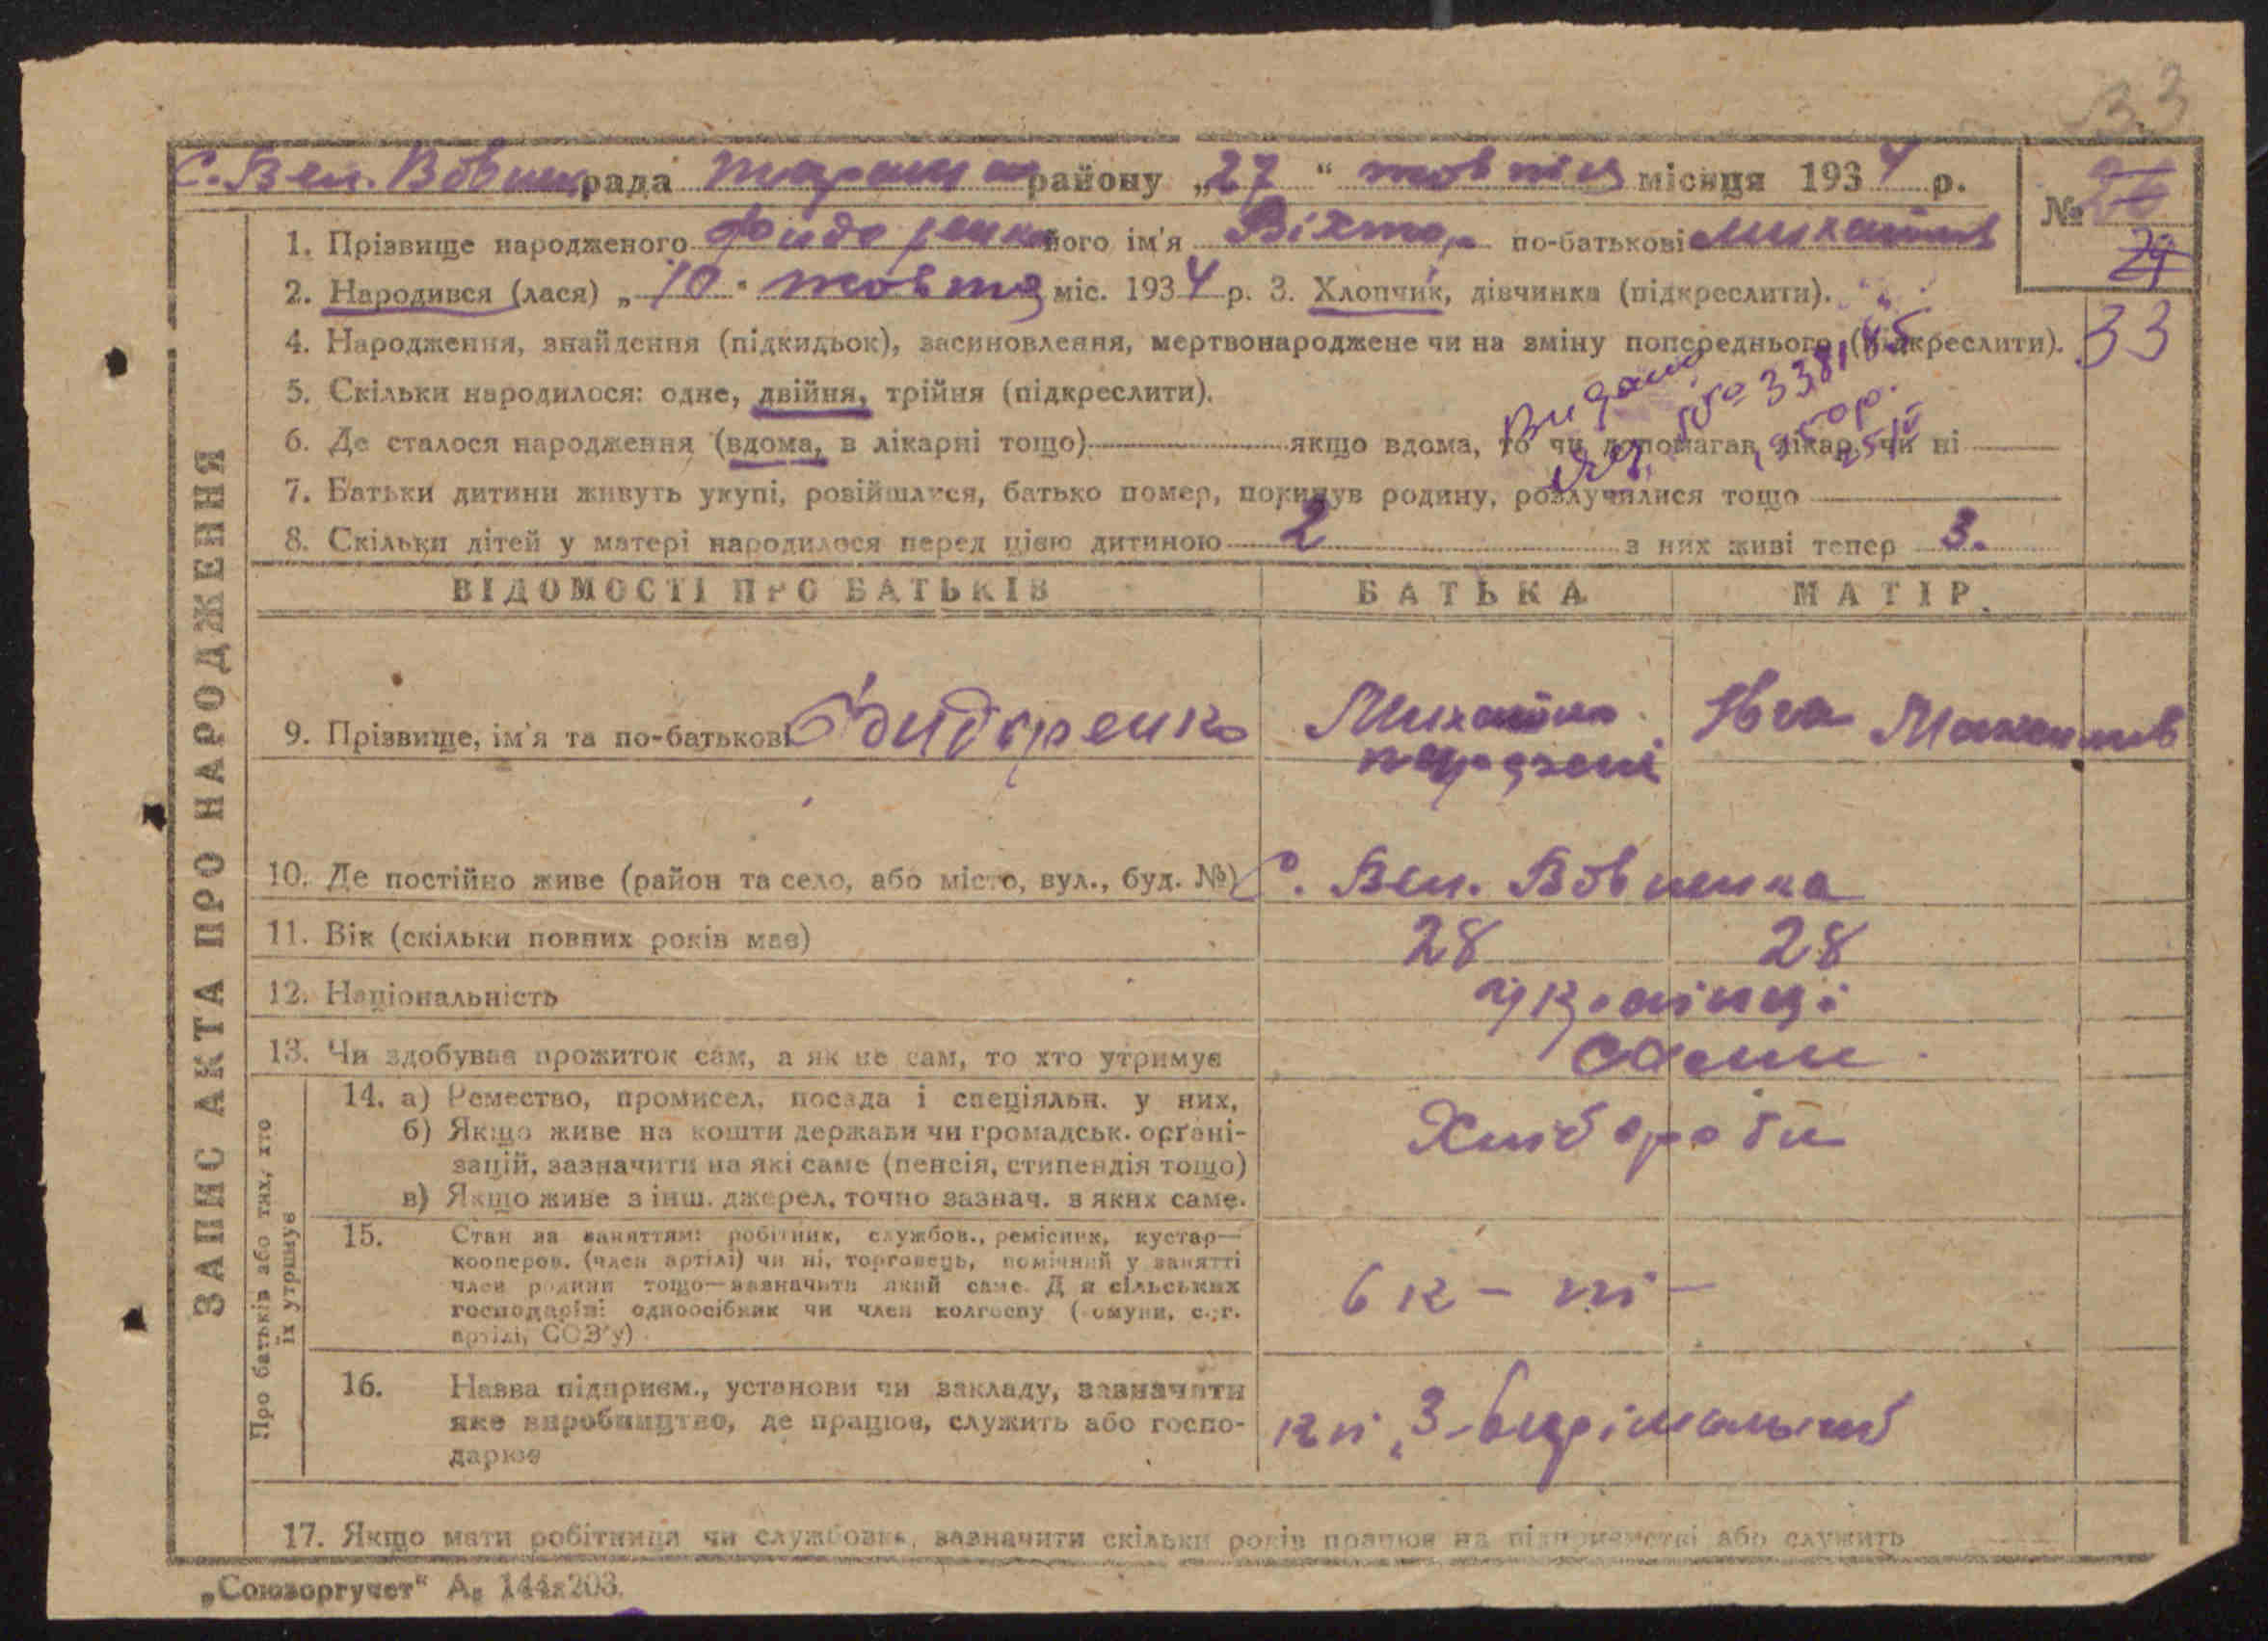 33
С. Вел. Вовн рада Таращ району „27“ жовтня місяця 1934 р.
№ 26
29
33
1. Прізвище народженого Фидоренко його ім'я Віктор по-батькові Михайлов
2. Народився (лася) „10“ жовтня міс. 1934 р. 3. Хлопчик, дівчинка (підкреслити).
4. Народження, знайдення (підкидьок), засиновлення, мертвонароджене чи на зміну попереднього (підкреслити).
5. Скільки народилося: одне, двійня, трійня (підкреслити).
6. Де сталося народження (вдома, в лікарні тощо) якщо вдома, то чи допомагав лікар чи ні
7. Батьки дитини живуть укупі, розійшлися, батько помер, покинув родину, розлучилися тощо
8. Скільки дітей у матері народилося перед цією дитиною 2 з них живі тепер 3.
Видано
ВІДОМОСТІ ПРО БАТЬКІВ БАТЬКА МАТІР.
9. Прізвище, ім'я та по-батькові Фидоренко Михайло Ива
10. Де постійно живе (район та село, або місто, вул., буд. №) С. Вел. Вовнянка
11. Вік (скільки повних років має) 28 28
12. Національність українці
13. Чи здобуває прожиток сам, а як не сам, то хто утримує сами
14. а) Ремество, промисел, посада і спеціяльн. у них, Хлібороби
б) Якщо живе на кошти держави чи громадськ. органі-
зацій, зазначити на які саме (пенсія, стипендія тощо)
в) Якщо живе з інш. джерел, точно зазнач. з яких саме.
15. Стан за заняттям: робітник, службов., ремісник, кустар—
кооперов. (член артілі) чи ні, торговець, помічний у занятті
член родини тощо—зазначити який саме. Для сільських
господарів: одноосібник чи член колгоспу (комуни, с.-г.
артілі, СОЗ'у)
16. Назва підприєм., установи чи закладу, зазначити
яке виробництво, де працює, служить або госпо-
дарює
17. Якщо мати робітниця чи службовка, зазначити скільки років працює на підприємстві або служить
ЗАПИС АКТА ПРО НАРОДЖЕННЯ
Про батьків або тих, хто
їх утримує
„Союзоргучет“